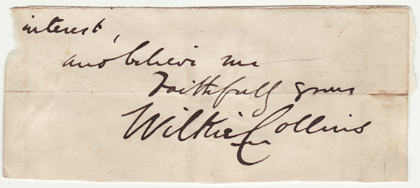 interest,
and believe me
Faithfully yours
Wilkie Collins